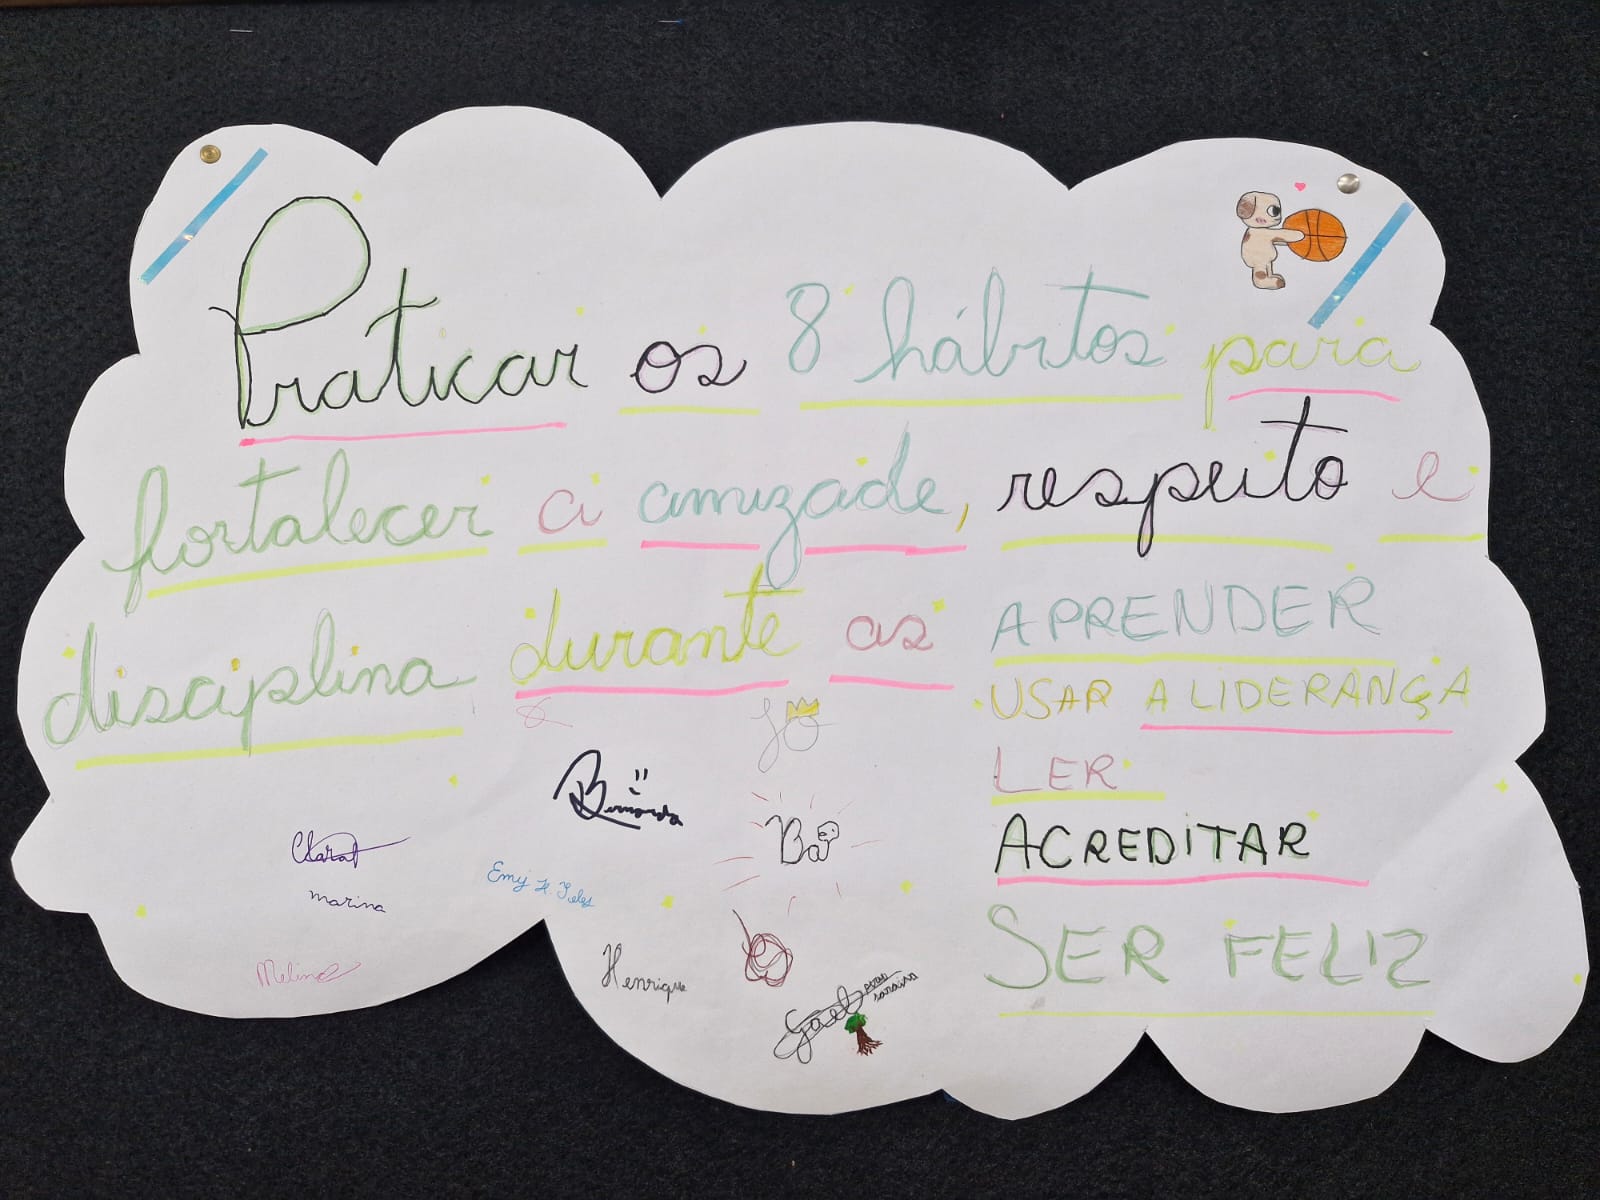 Praticar os 8 hábitos para
fortalecer a amizade, respeito e
disciplina durante as APRENDER
USAR A LIDERANÇA
LER
ACREDITAR
SER FELIZ
JO
Bernarda
Bá
Clara
Emy H. Teles
marina
Melina
Henrique
Gael
saraiva